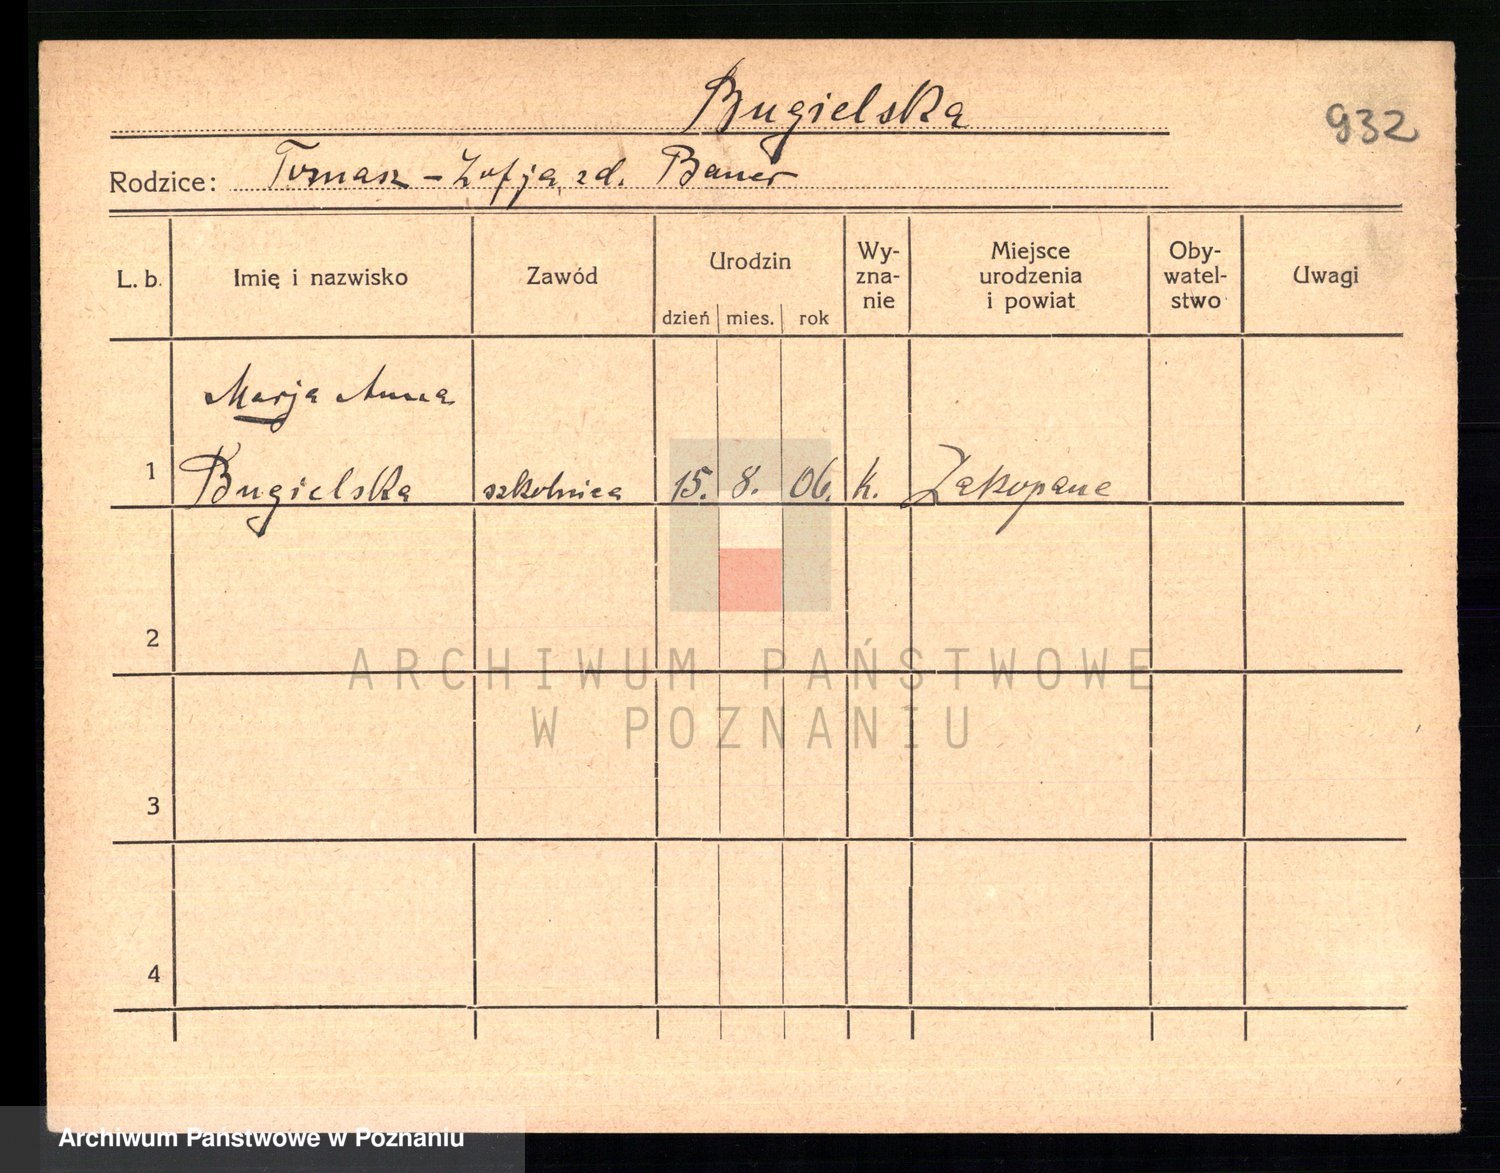 Bugielska
932
Rodzice: Tomasz – Zofja zd. Bauer
L. b.
Imię i nazwisko
Zawód
Urodzin
dzień mies. rok
Wy-
zna-
nie
Miejsce
urodzenia
i powiat
Oby-
watel-
stwo
Uwagi
Marja Anna
1 Bugielska szkolnica 15. 8. 06. k. Zakopane
2
ARCHIWUM PAŃSTWOWE
W POZNANIU
3
4
Archiwum Państwowe w Poznaniu